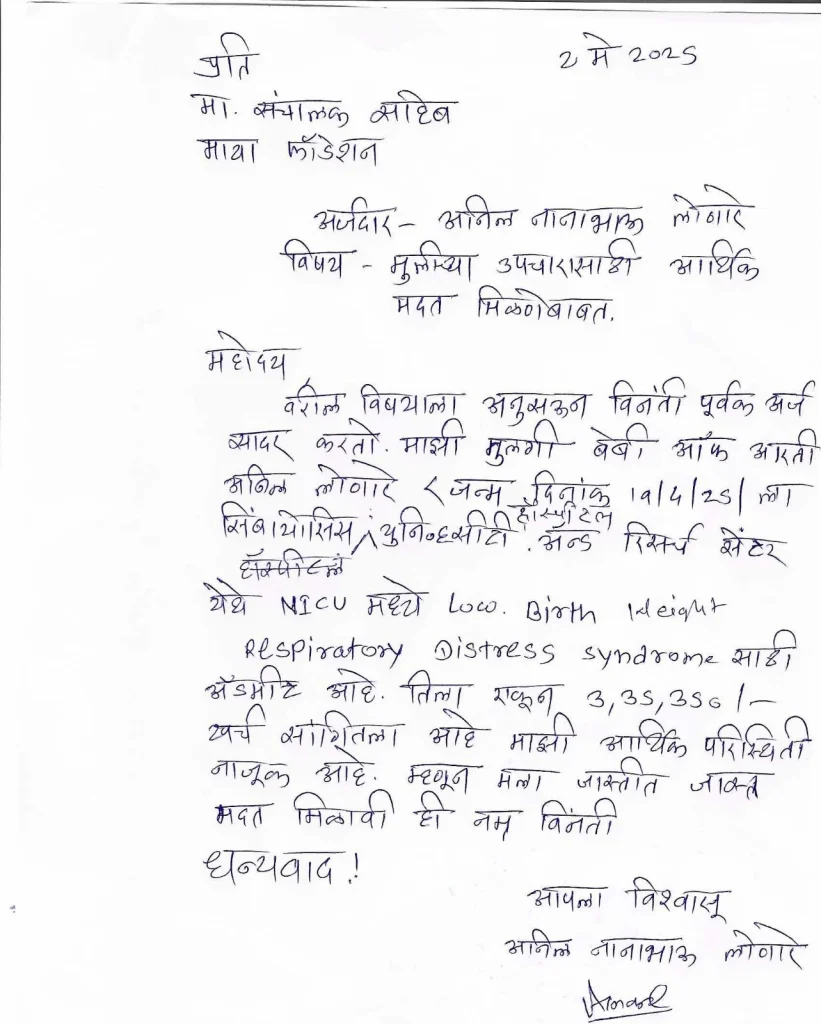 प्रति
2 मे 2025
मा. संचालक साहेब
माया फॉडेशन
अर्जदार - अनिल नानाभाऊ लोणारे
विषय - मुलीच्या उपचारासाठी आर्थिक
मदत मिळणेबाबत.
महोदय
वरील विषयाला अनुसरून विनंती पूर्वक अर्ज
सादर करतो. माझी मुलगी बेबी ऑफ आरती
अनिल लोणारे जन्म दिनांक 19/4/25/ ला
हॉस्पीटल
सिंबायोसिस युनिव्हर्सीटी. अॅन्ड रिसर्च सेंटर
येथे NICU मध्ये Low. Birth Weight
Respiratory Distress syndrome साठी
अॅडमीट आहे. तिला एकून 3,35,350/-
खर्च सांगितला आहे माझी आर्थिक परिस्थिती
नाजूक आहे. म्हणून मला जास्तीत जास्त
मदत मिळावी ही नम्र विनंती
धन्यवाद!
आपला विश्वासू
अनिल नानाभाऊ लोणारे